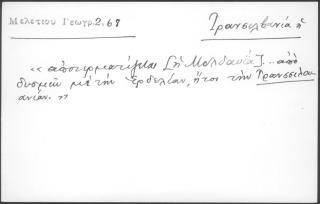 Μελετίου Γεωγρ.2.67
Τρανσιλβανία ἡ
«ἀποτερματίζεται [ἡ Μολδαυΐα]... ἀπὸ
δυσμῶν μὲ τὴν Ἐρδελίαν, ἤτοι τὴν Τρανσιλου
ανίαν.»